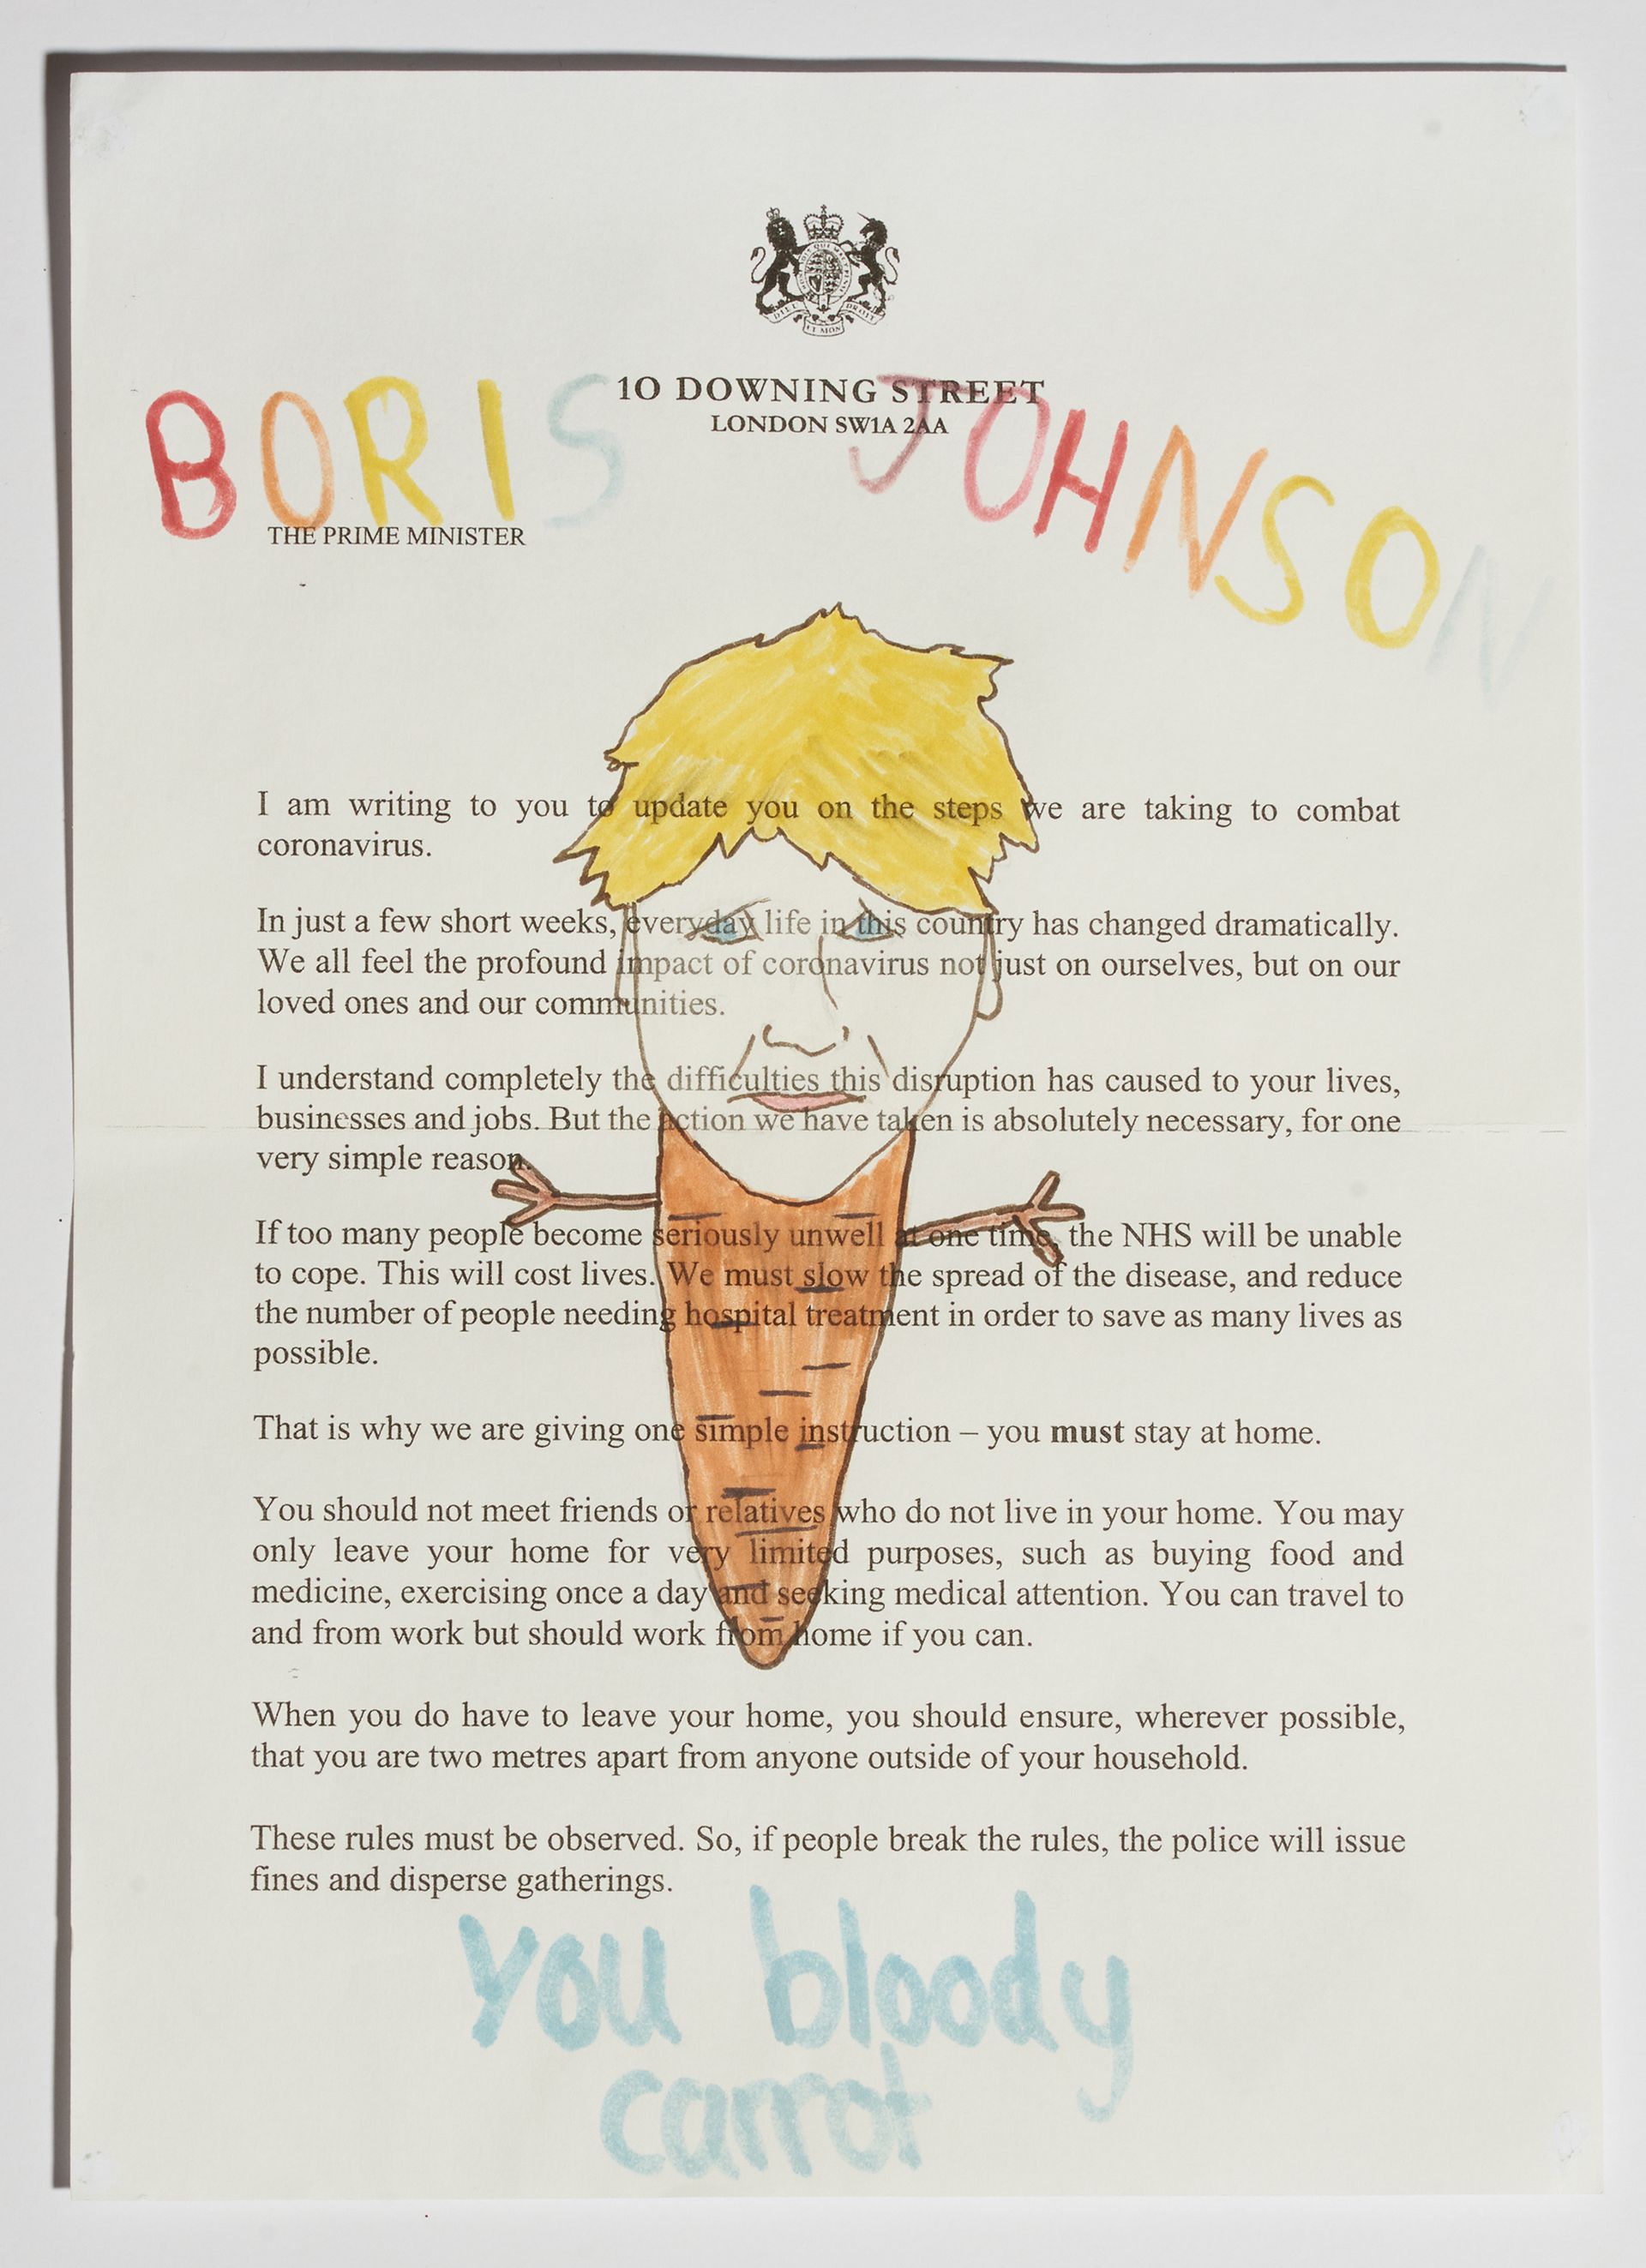 10 DOWNING STREET
LONDON SW1A 2AA
BORIS JOHNSON
THE PRIME MINISTER
I am writing to you to update you on the steps we are taking to combat
coronavirus.
In just a few short weeks, everyday life in this country has changed dramatically.
We all feel the profound impact of coronavirus not just on ourselves, but on our
loved ones and our communities.
I understand completely the difficulties this disruption has caused to your lives,
businesses and jobs. But the action we have taken is absolutely necessary, for one
very simple reason.
If too many people become seriously unwell at one time, the NHS will be unable
to cope. This will cost lives. We must slow the spread of the disease, and reduce
the number of people needing hospital treatment in order to save as many lives as
possible.
That is why we are giving one simple instruction – you must stay at home.
You should not meet friends or relatives who do not live in your home. You may
only leave your home for very limited purposes, such as buying food and
medicine, exercising once a day and seeking medical attention. You can travel to
and from work but should work from home if you can.
When you do have to leave your home, you should ensure, wherever possible,
that you are two metres apart from anyone outside of your household.
These rules must be observed. So, if people break the rules, the police will issue
fines and disperse gatherings.
You bloody
carrot